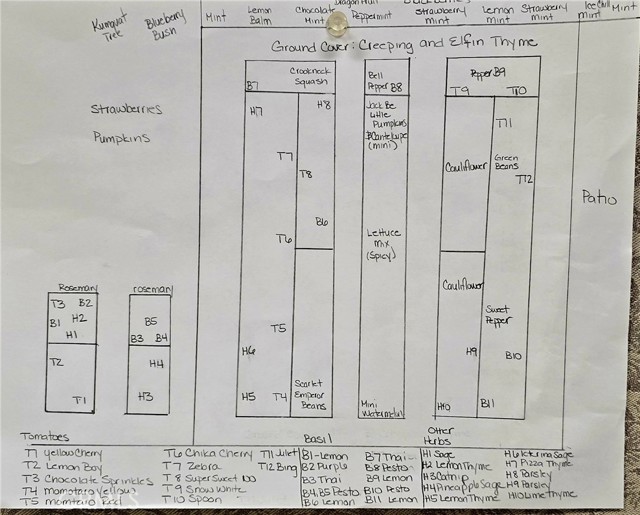 Kumquat Tree
Blueberry Bush
Mint
Lemon Balm
Chocolate Mint
Dragon
Peppermint
Strawberry mint
Lemon mint
Strawberry mint
Ice Chill mint
Mint
Ground Cover: Creeping and Elfin Thyme
Strawberries
Pumpkins
Patio
Crookneck Squash
B7
H7
H8
T7
T8
B6
T6
T5
H6
H5
T4
Scarlet Emperor Beans
Bell Pepper B8
Jack Be Little Pumpkins
(mini)
Lettuce Mix (Spicy)
Mini
Pepper B9
T9
T10
T11
Cauliflower
Green Beans
T12
Cauliflower
Sweet Pepper
H9
B10
H10
B11
Rosemary
T3 B2
B1 H2
H1
T2
T1
rosemary
B5
B3 B4
H4
H3
Tomatoes
T1 yellow Cherry
T2 Lemon Boy
T3 Chocolate Sprinkles
T4 momotaro Yellow
T5
T6 Chika Cherry
T7 Zebra
T8 Super Sweet 100
T9 Snow White
T10 Spoon
T11 Juliet
T12 Bing
Basil
B1-Lemon
B2 Purple
B3 Thai
B4,B5 Pesto
B6 Lemon
B7 Thai
B8 Pesto
B9 Lemon
B10 Pesto
B11 Lemon
Other Herbs
H1 Sage
H2 Lemon Thyme
H3 Catnip
H4 Pineapple Sage
H5 Lemon Thyme
H6 Icterina Sage
H7 Pizza Thyme
H8 Parsley
H9 Parsley
H10 Lime Thyme